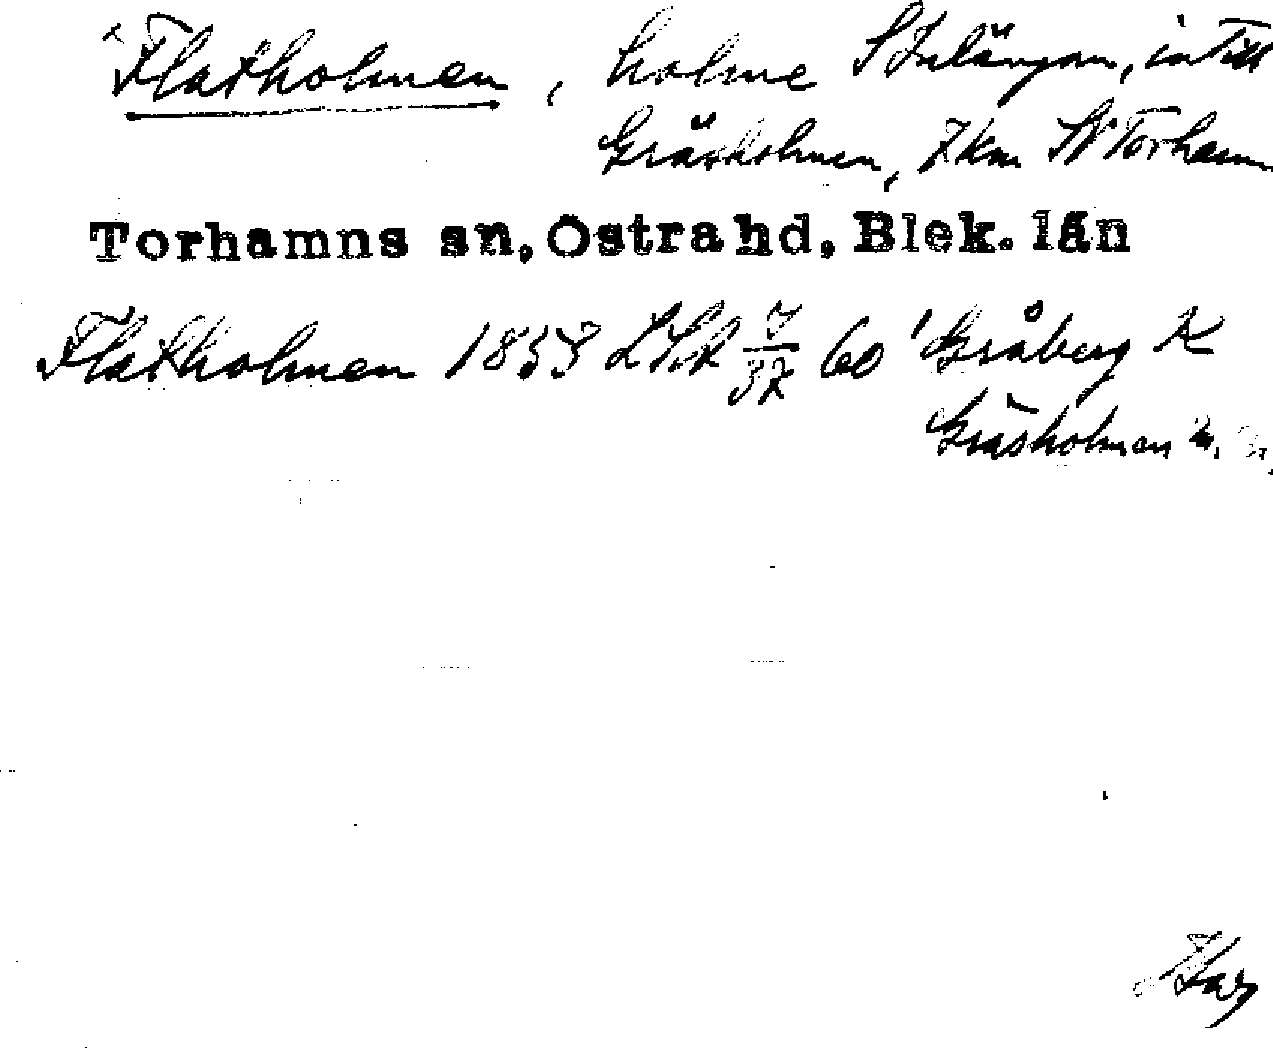 Flatholmen, holme S Inlängan, intill
Gräsholmen, 7 km SV Torhamn
Torhamns sn, Östra hd, Blek. län
Flatholmen 1853 LSA 7/37 60 Gråberg K
Gräsholmen